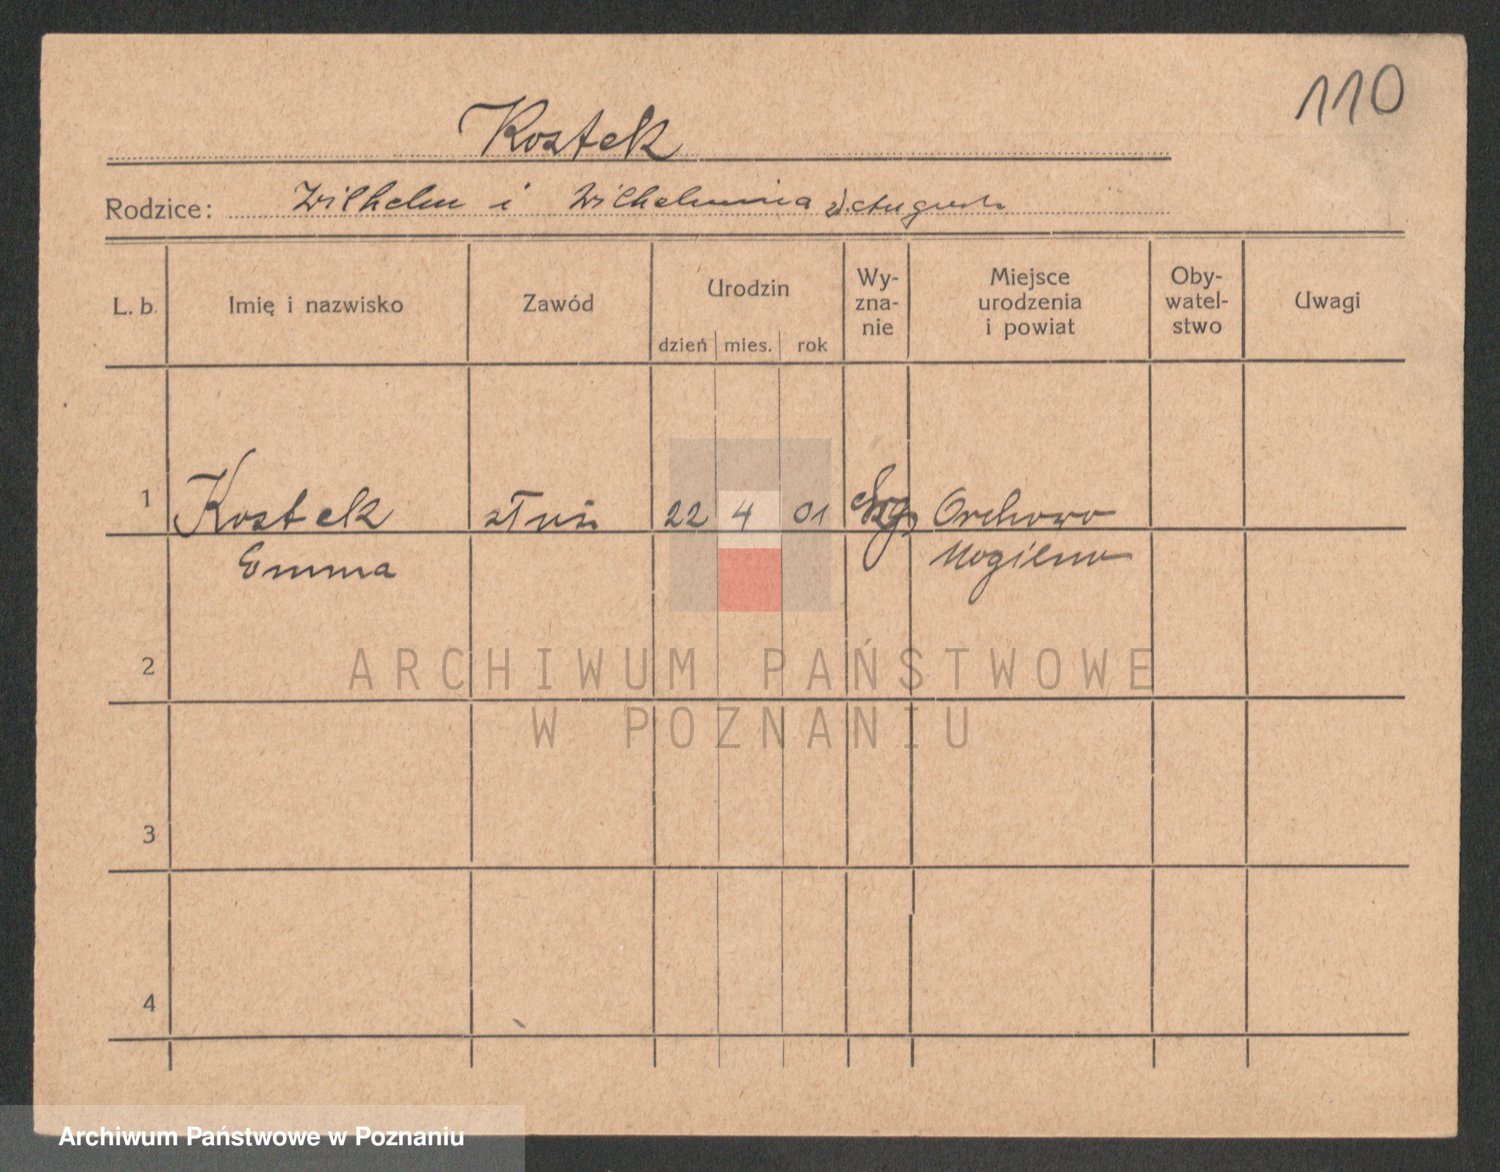 110
Kostek
Rodzice: Wilhelm i Wilhelmina
L. b. Imię i nazwisko Zawód Urodzin dzień mies. rok Wy-zna-nie Miejsce urodzenia i powiat Oby-watel-stwo Uwagi
1 Kostek 22 4 01 Orchowo
Emma Mogilno
2
ARCHIWUM PAŃSTWOWE
W POZNANIU
3
4
Archiwum Państwowe w Poznaniu